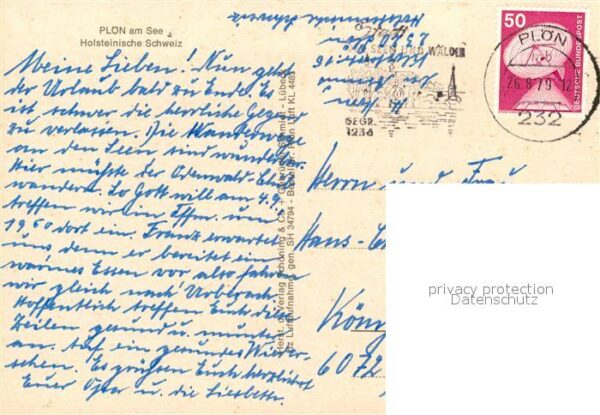 PLÖN am See
Holsteinische Schweiz
Meine Lieben! Nun geht
der Urlaub bald zu Ende. Es
ist schwer die herrliche Gegend
zu verlassen. Die Wanderwege
an den Seen sind wunderbar.
Hier müßte der Odenwald-Club
wandern. So Gott will am 4.9.
treffen wir in Ffm. um
19 50 dort ein. Franz erwartet
uns, denn er bereitet ein
warmes Essen vor also fahren
wir gleich nach Urberach
Hoffentlich treffen Euch diese
Zeilen gesund u. munter
an. Auf ein gesundes Wieder-
sehen. Es grüßen Euch herzlichst
Euer Oper u. die Liesbette.
Herst. u. Verlag Schöning & Co + Gebrüder Schmidt, Lübeck
gen. SH 34794
Luft KL 4483
SEEN UND WÄLDER
SEGR.
1236
50
DEUTSCHE BUNDESPOST
PLÖN
26.8.79-12
232
Herrn und Frau
Hans-
König
6072
privacy protection
Datenschutz